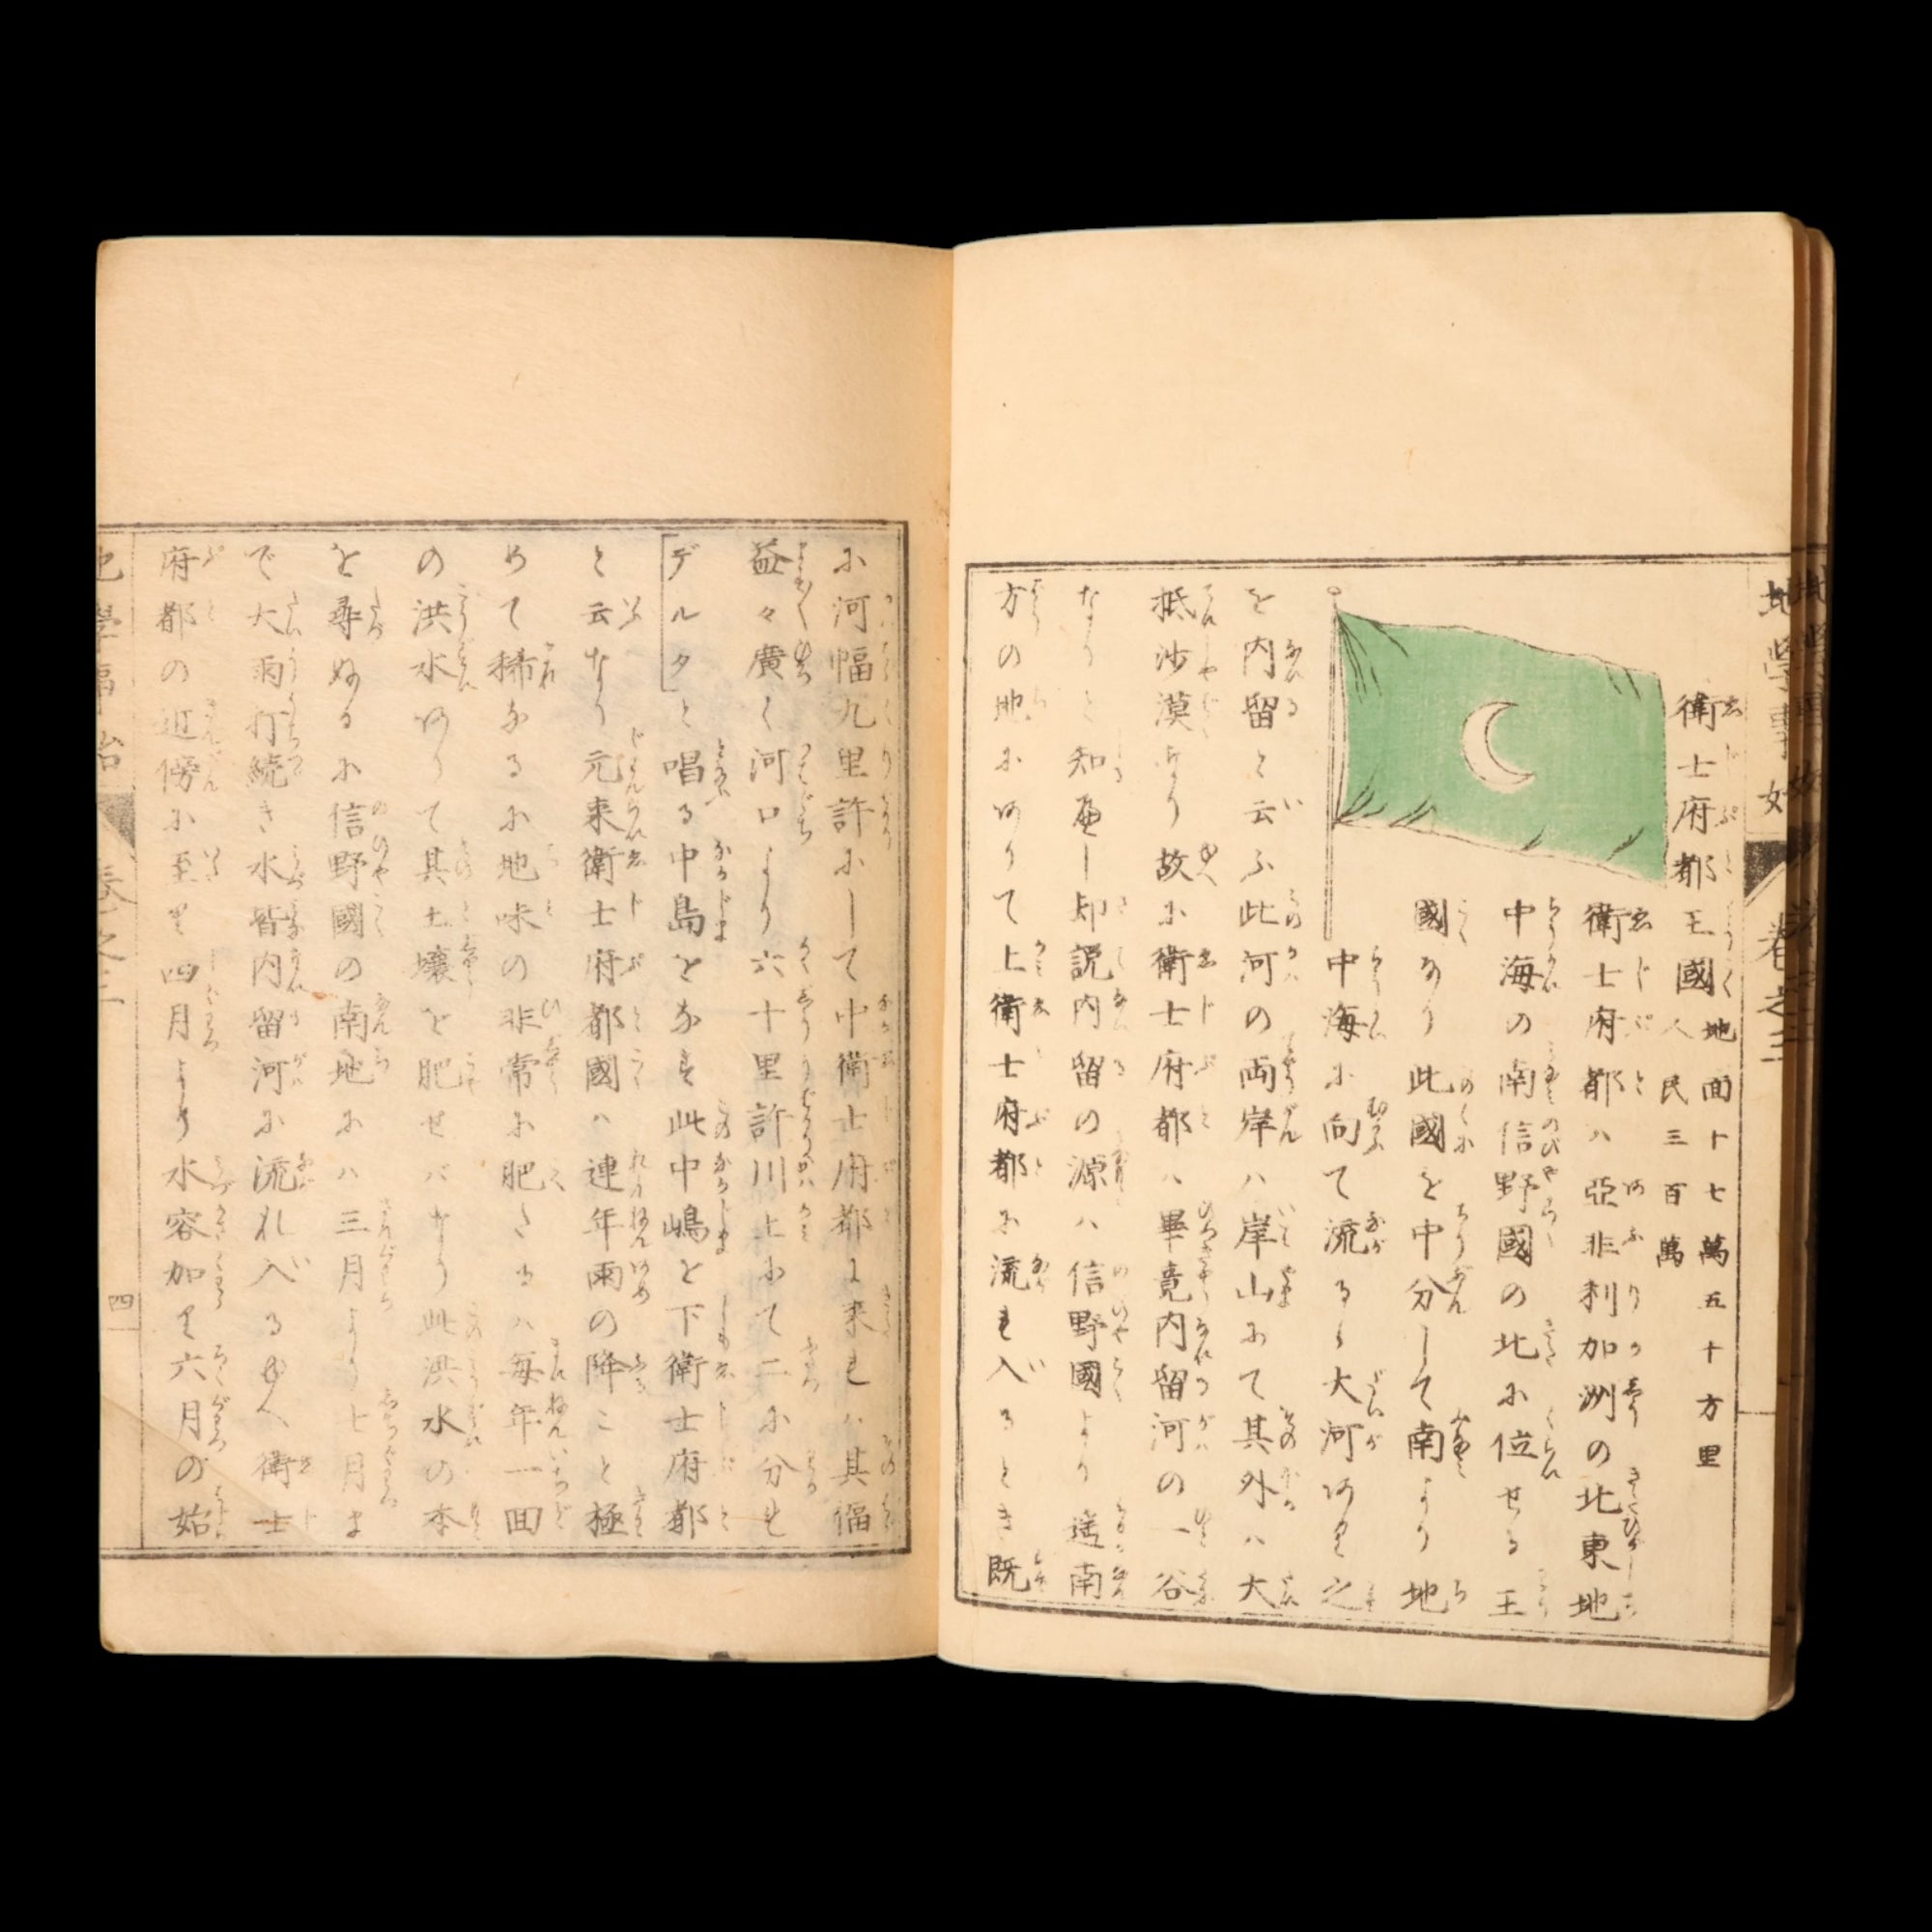 衛士府都王國
地面十七萬五十方里
人民三百萬
衛士府都ハ亞非利加洲の北東地
中海の南信野國の北に位せる王
國なり此國を中分して南より地
中海に向て流るゝ大河あり之
を内留と云ふ此河の両岸ハ岸山にて其外ハ大
抵沙漠なり故に衛士府都ハ畢竟内留河の一谷
なりと知るべし却説内留の源ハ信野國より遥南
方の地にありて上衛士府都に流れ入るとき既
に河幅九里許にして中衛士府都に来れハ其幅
益々廣く河口より六十里許川上にて二に分れ
デルタと唱る中島を為す此中嶋を下衛士府都
と云なり元来衛士府都國ハ連年雨の降こと極
めて稀なるに地味の非常に肥たるハ毎年一回
の洪水ありて其土壌を肥せバなり此洪水の本
を尋ぬるに信野國の南地にハ三月より七月ま
で大雨打続き水皆内留河に流れ入るゆへ衛士
府都の近傍に至り四月より水容加り六月の始
地學事始
巻之三
四